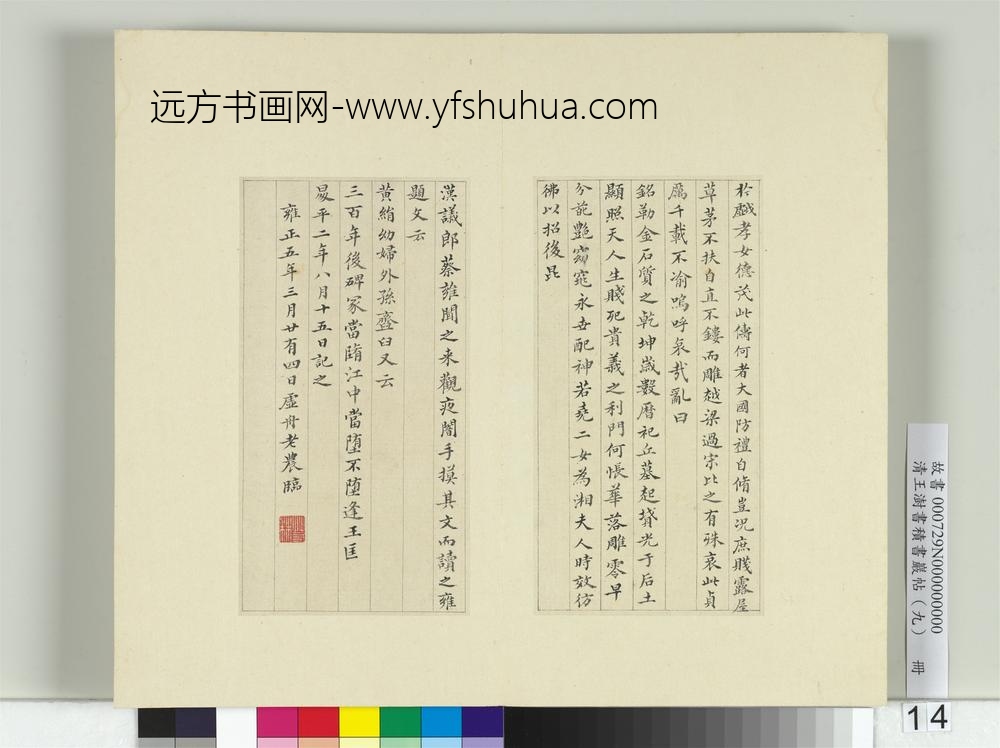 远方书画网-www.yfshuhua.com
於戲孝女德茂此儔何者大國防禮自脩豈况庶賤露屋
草茅不扶自直不鏤而雕越梁過宋比之有殊哀此貞
厲千載不渝嗚呼哀哉亂曰
銘勒金石質之乾坤歲數曆祀丘墓起墳光于后土
顯照天人生賤死貴義之利門何悵華落雕零早
分葩艷窈窕永世配神若堯二女為湘夫人時效彷
彿以招後昆
漢議郎蔡雍聞之来觀夜闇手摸其文而讀之雍
題文云
黃絹幼婦外孫齏臼又云
三百年後碑冢當墮江中當墮不墮逢王匡
昜平二年八月十五日記之
雍正五年三月廿有四日虛舟老農臨
故書 000729N000000000
清王澍書積書巖帖（九） 冊
14